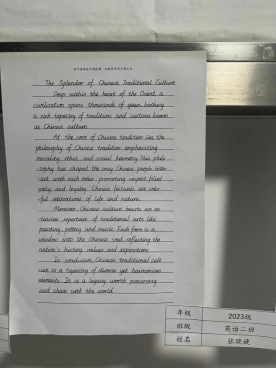 The Splendor of Chinese Traditional Culture
Deep within the heart of the Orient, a
civilization spans thousands of years, birthing
a rich tapestry of traditions and customs known
as Chinese culture.
At the core of Chinese tradition lies the
philosophy of Chinese tradition, emphasizing
morality, ethics, and social harmony. This philo-
sophy has shaped the way Chinese people inter-
act with each other, promoting respect, filial
piety, and loyalty. Chinese festivals are color-
ful celebrations of life and nature.
Moreover, Chinese culture boasts an ex-
tensive repertoire of traditional arts like
painting, pottery and music. Each form is a
window into the Chinese soul, reflecting the
nation's history, values and aspirations.
In conclusion, Chinese traditional cult-
ure is a tapestry of diverse yet harmonious
elements. It is a legacy worth preserving
and share with the world.
年级 2023级
班级 英语二班
姓名 张晓婕